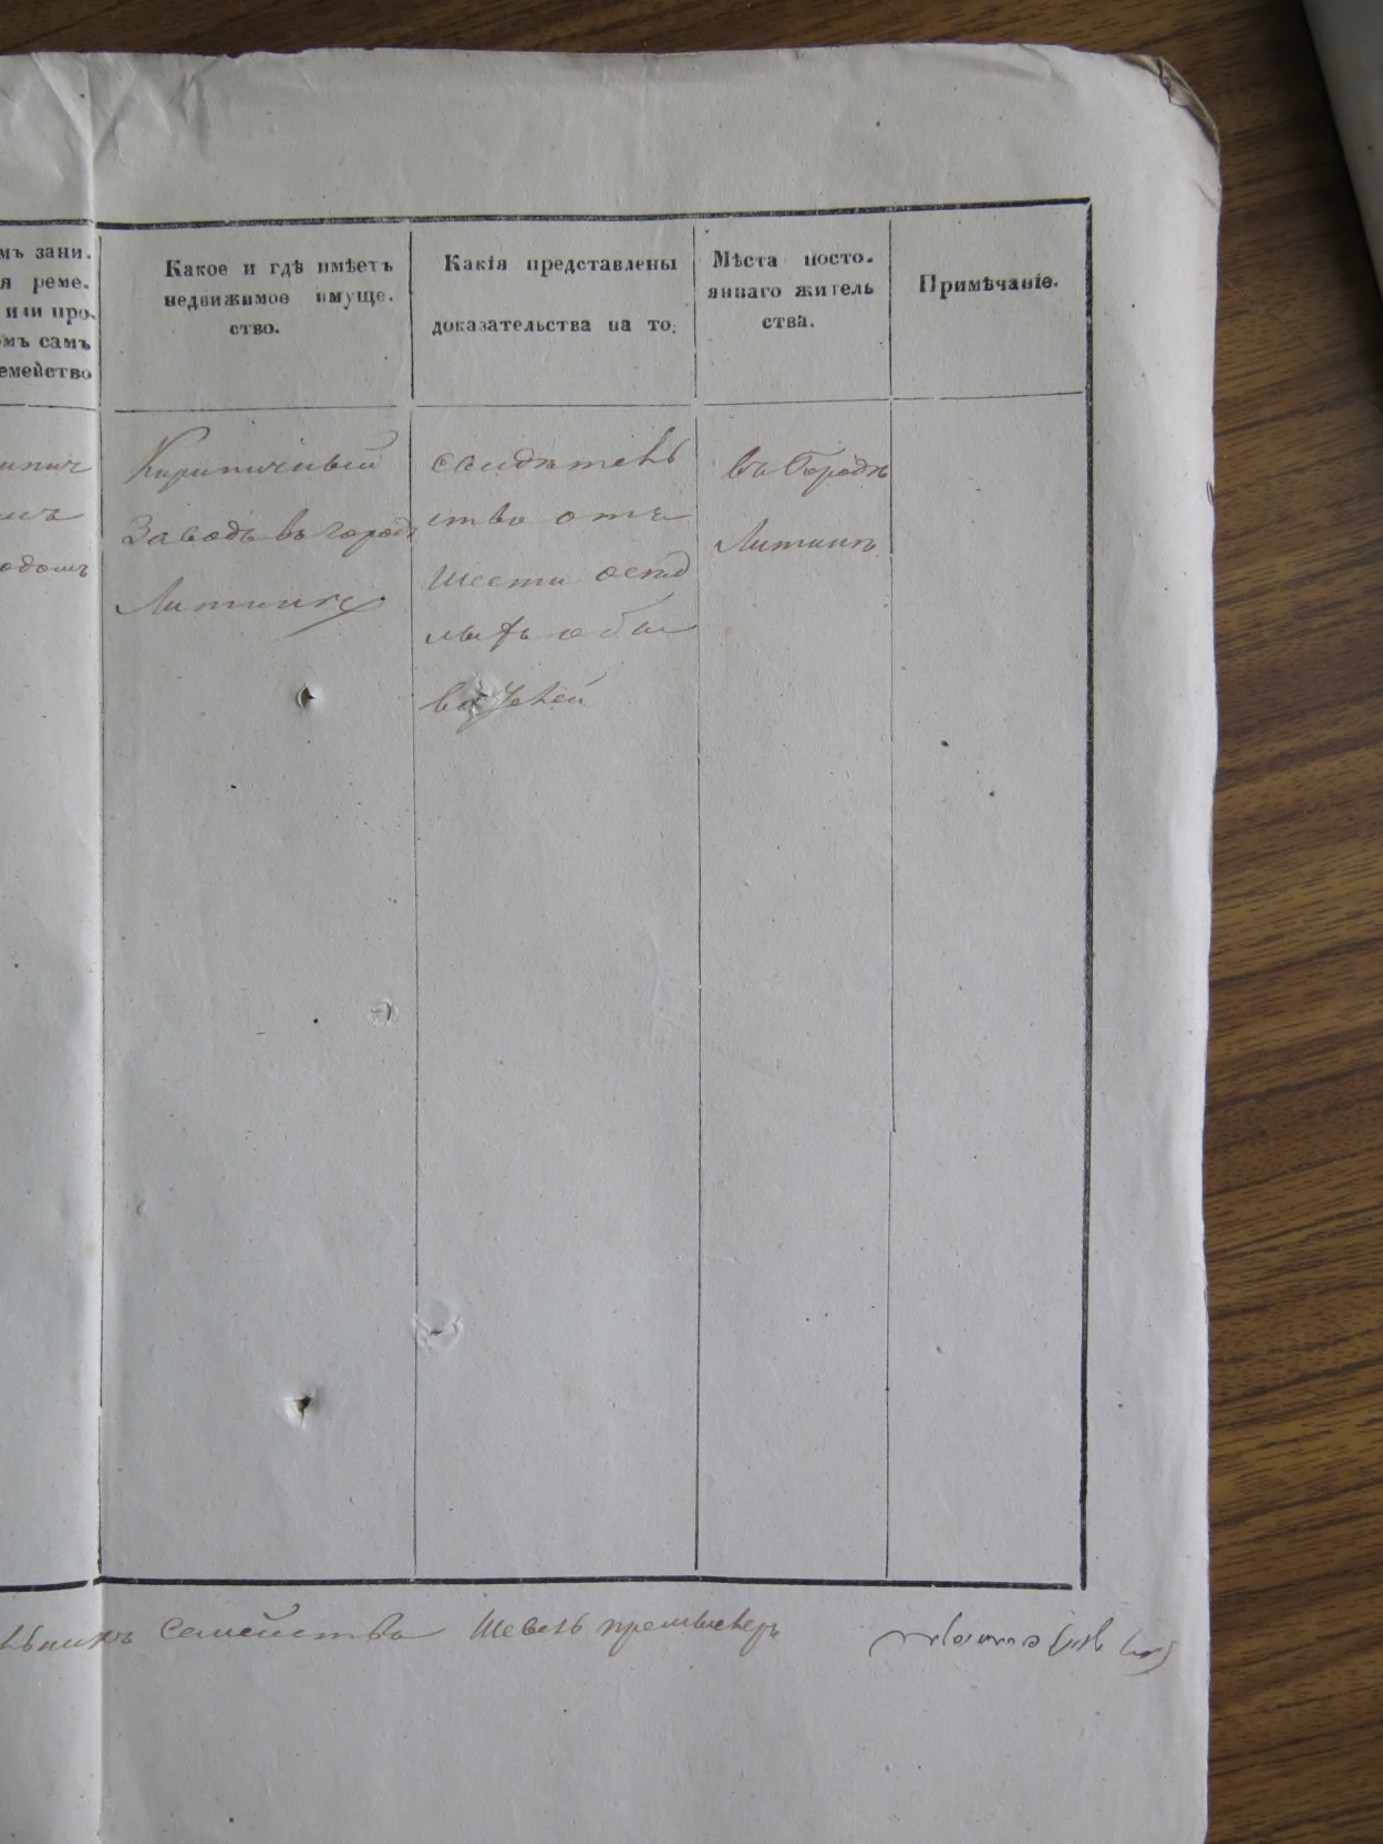 мъ зани.
я реме.
или про.
омъ самъ
емейство
Какое и гдѣ имѣетъ
недвижимое имуще.
ство.
Какія представлены
доказательства на то.
Мѣста посто.
яннаго житель
ства.
Примѣчаніе.
ипич
одомъ
Кирпичный
Заводъ въ городѣ
Литинѣ
свидѣтель
ство отъ
шести осѣд
лыхъ обы
вателей
въ Городѣ
Литинѣ
семейства Шевель